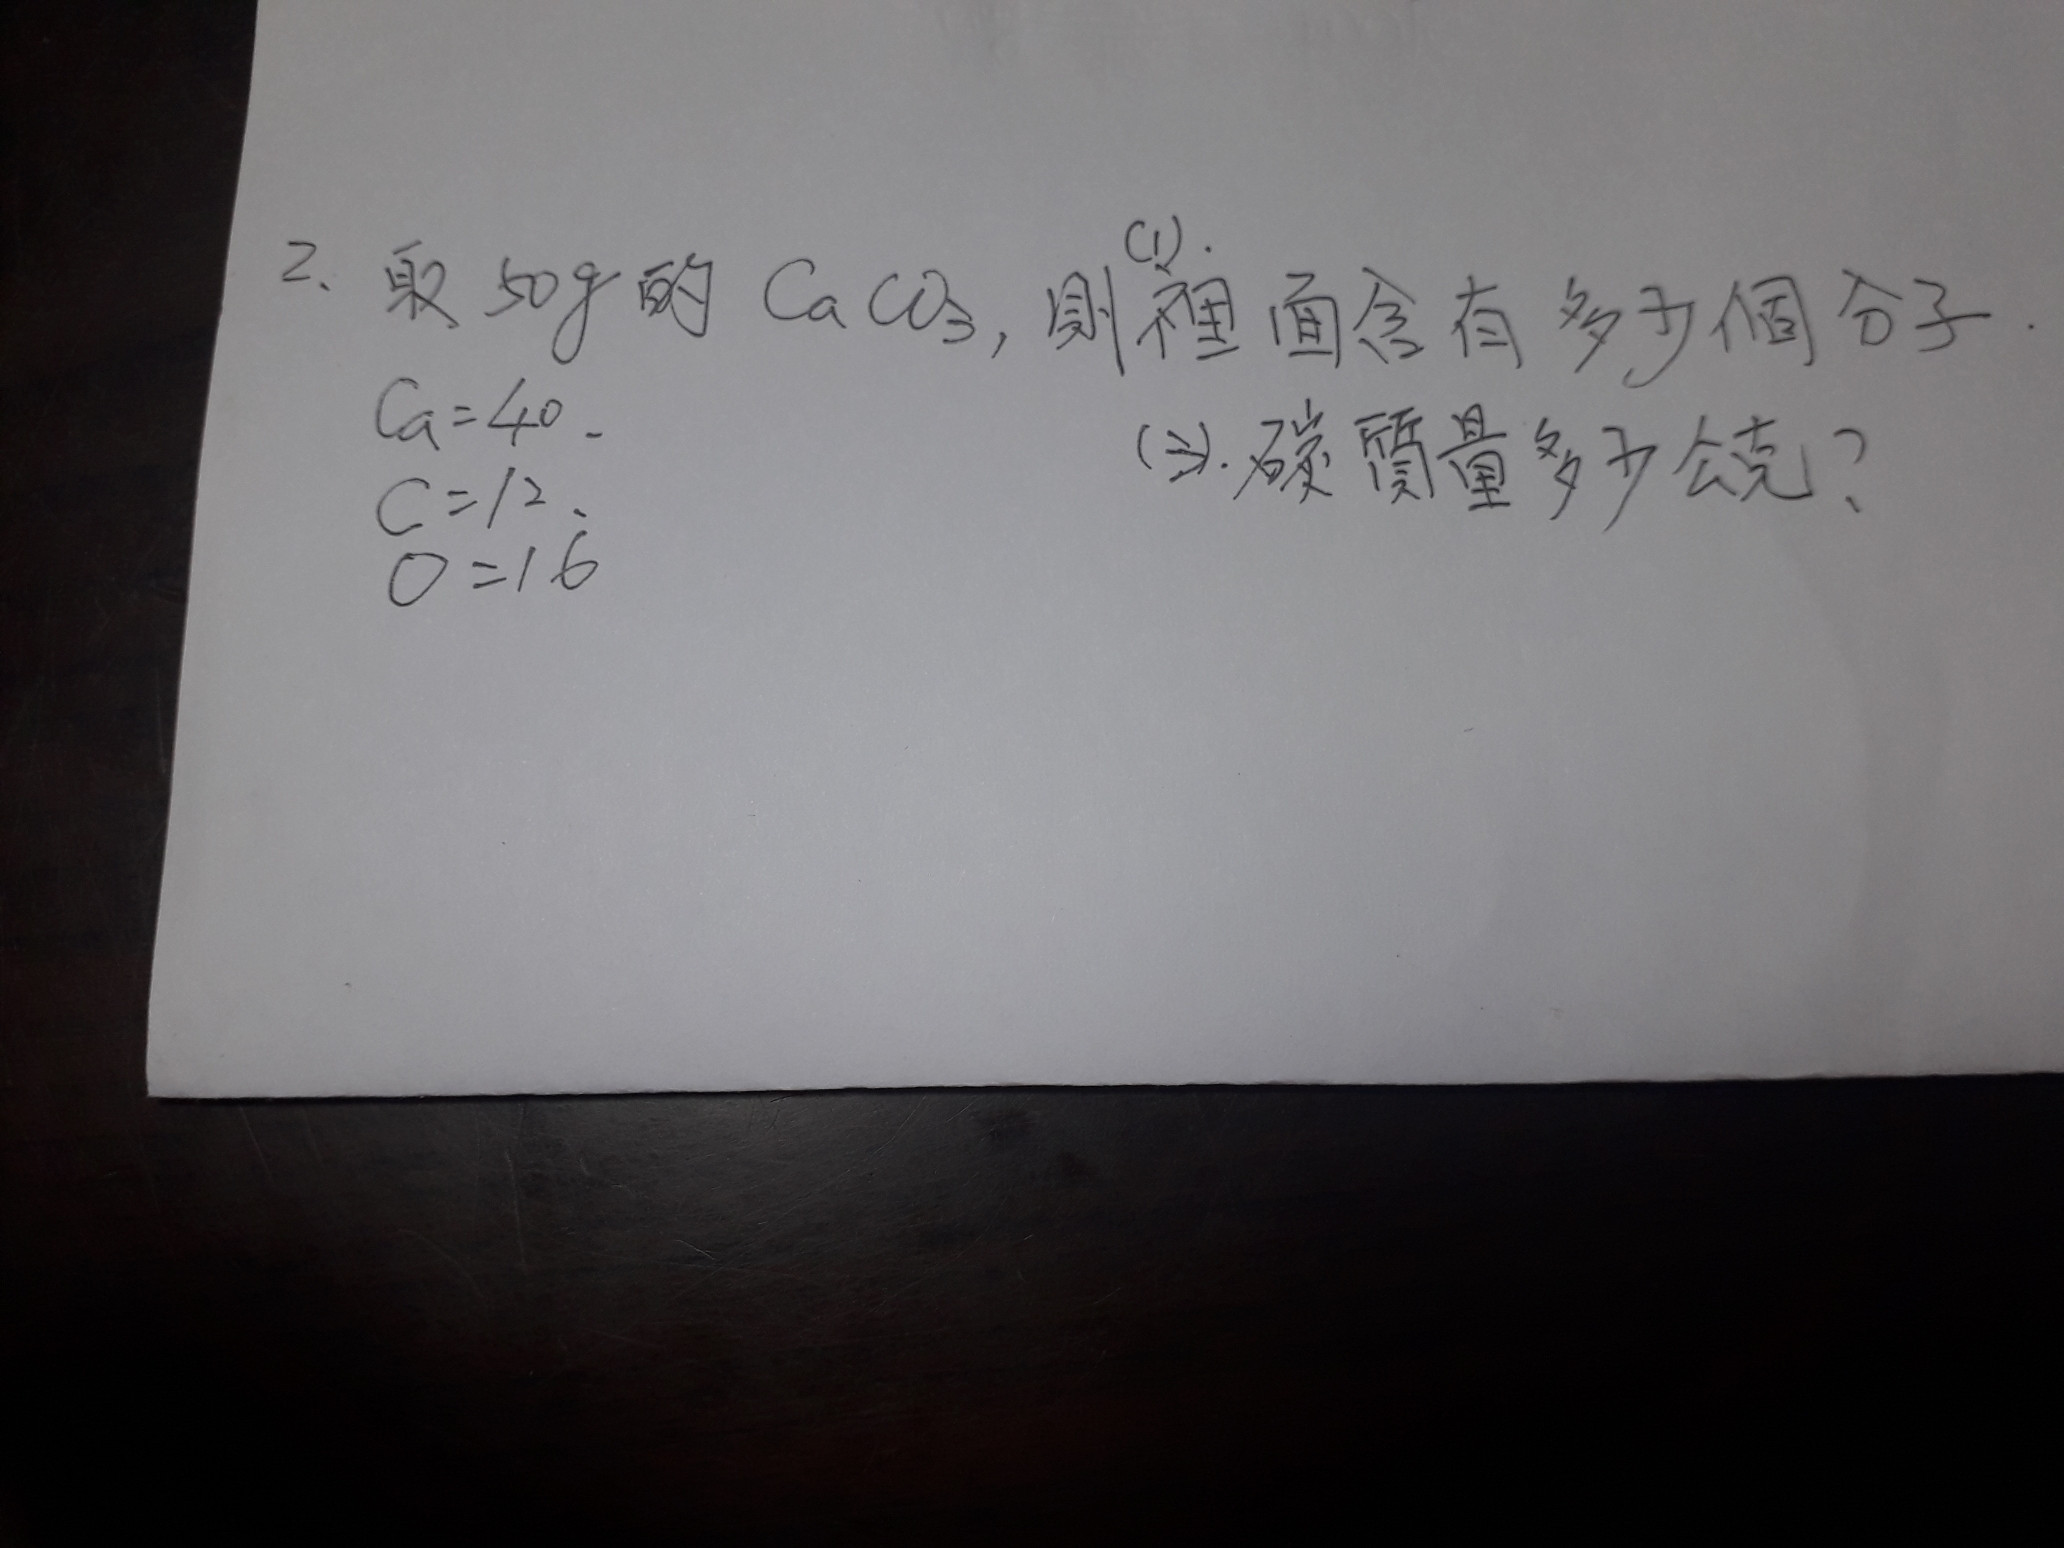 2、取50g的CaCO3,則(1).裡面含有多少個分子.
Ca=40.
(2).碳質量多少公克?
C=12、
O=16